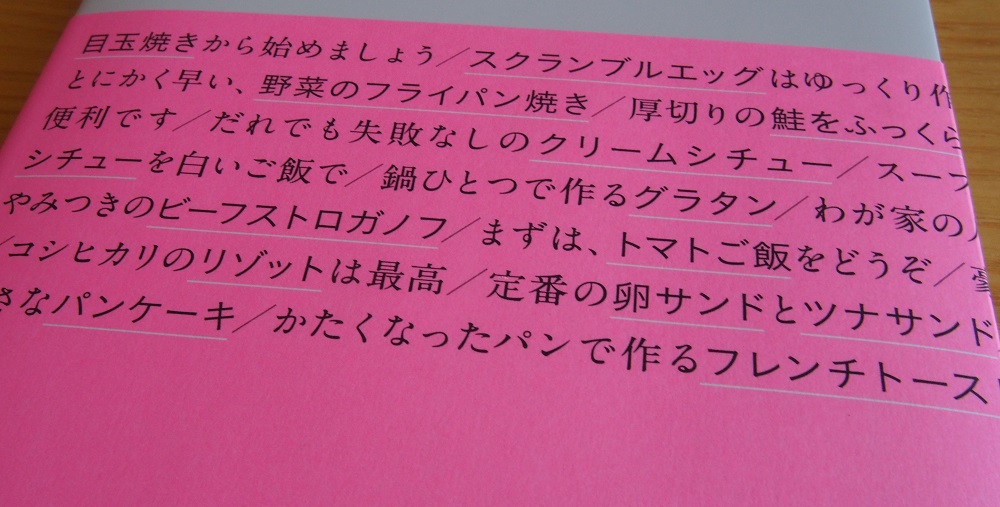 目玉焼きから始めましょう／スクランブルエッグはゆっくり作
とにかく早い、野菜のフライパン焼き／厚切りの鮭をふっくら
便利です／だれでも失敗なしのクリームシチュー／スープ
シチューを白いご飯で／鍋ひとつで作るグラタン／わが家の
やみつきのビーフストロガノフ／まずは、トマトご飯をどうぞ／
／コシヒカリのリゾットは最高／定番の卵サンドとツナサンド
さなパンケーキ／かたくなったパンで作るフレンチトース